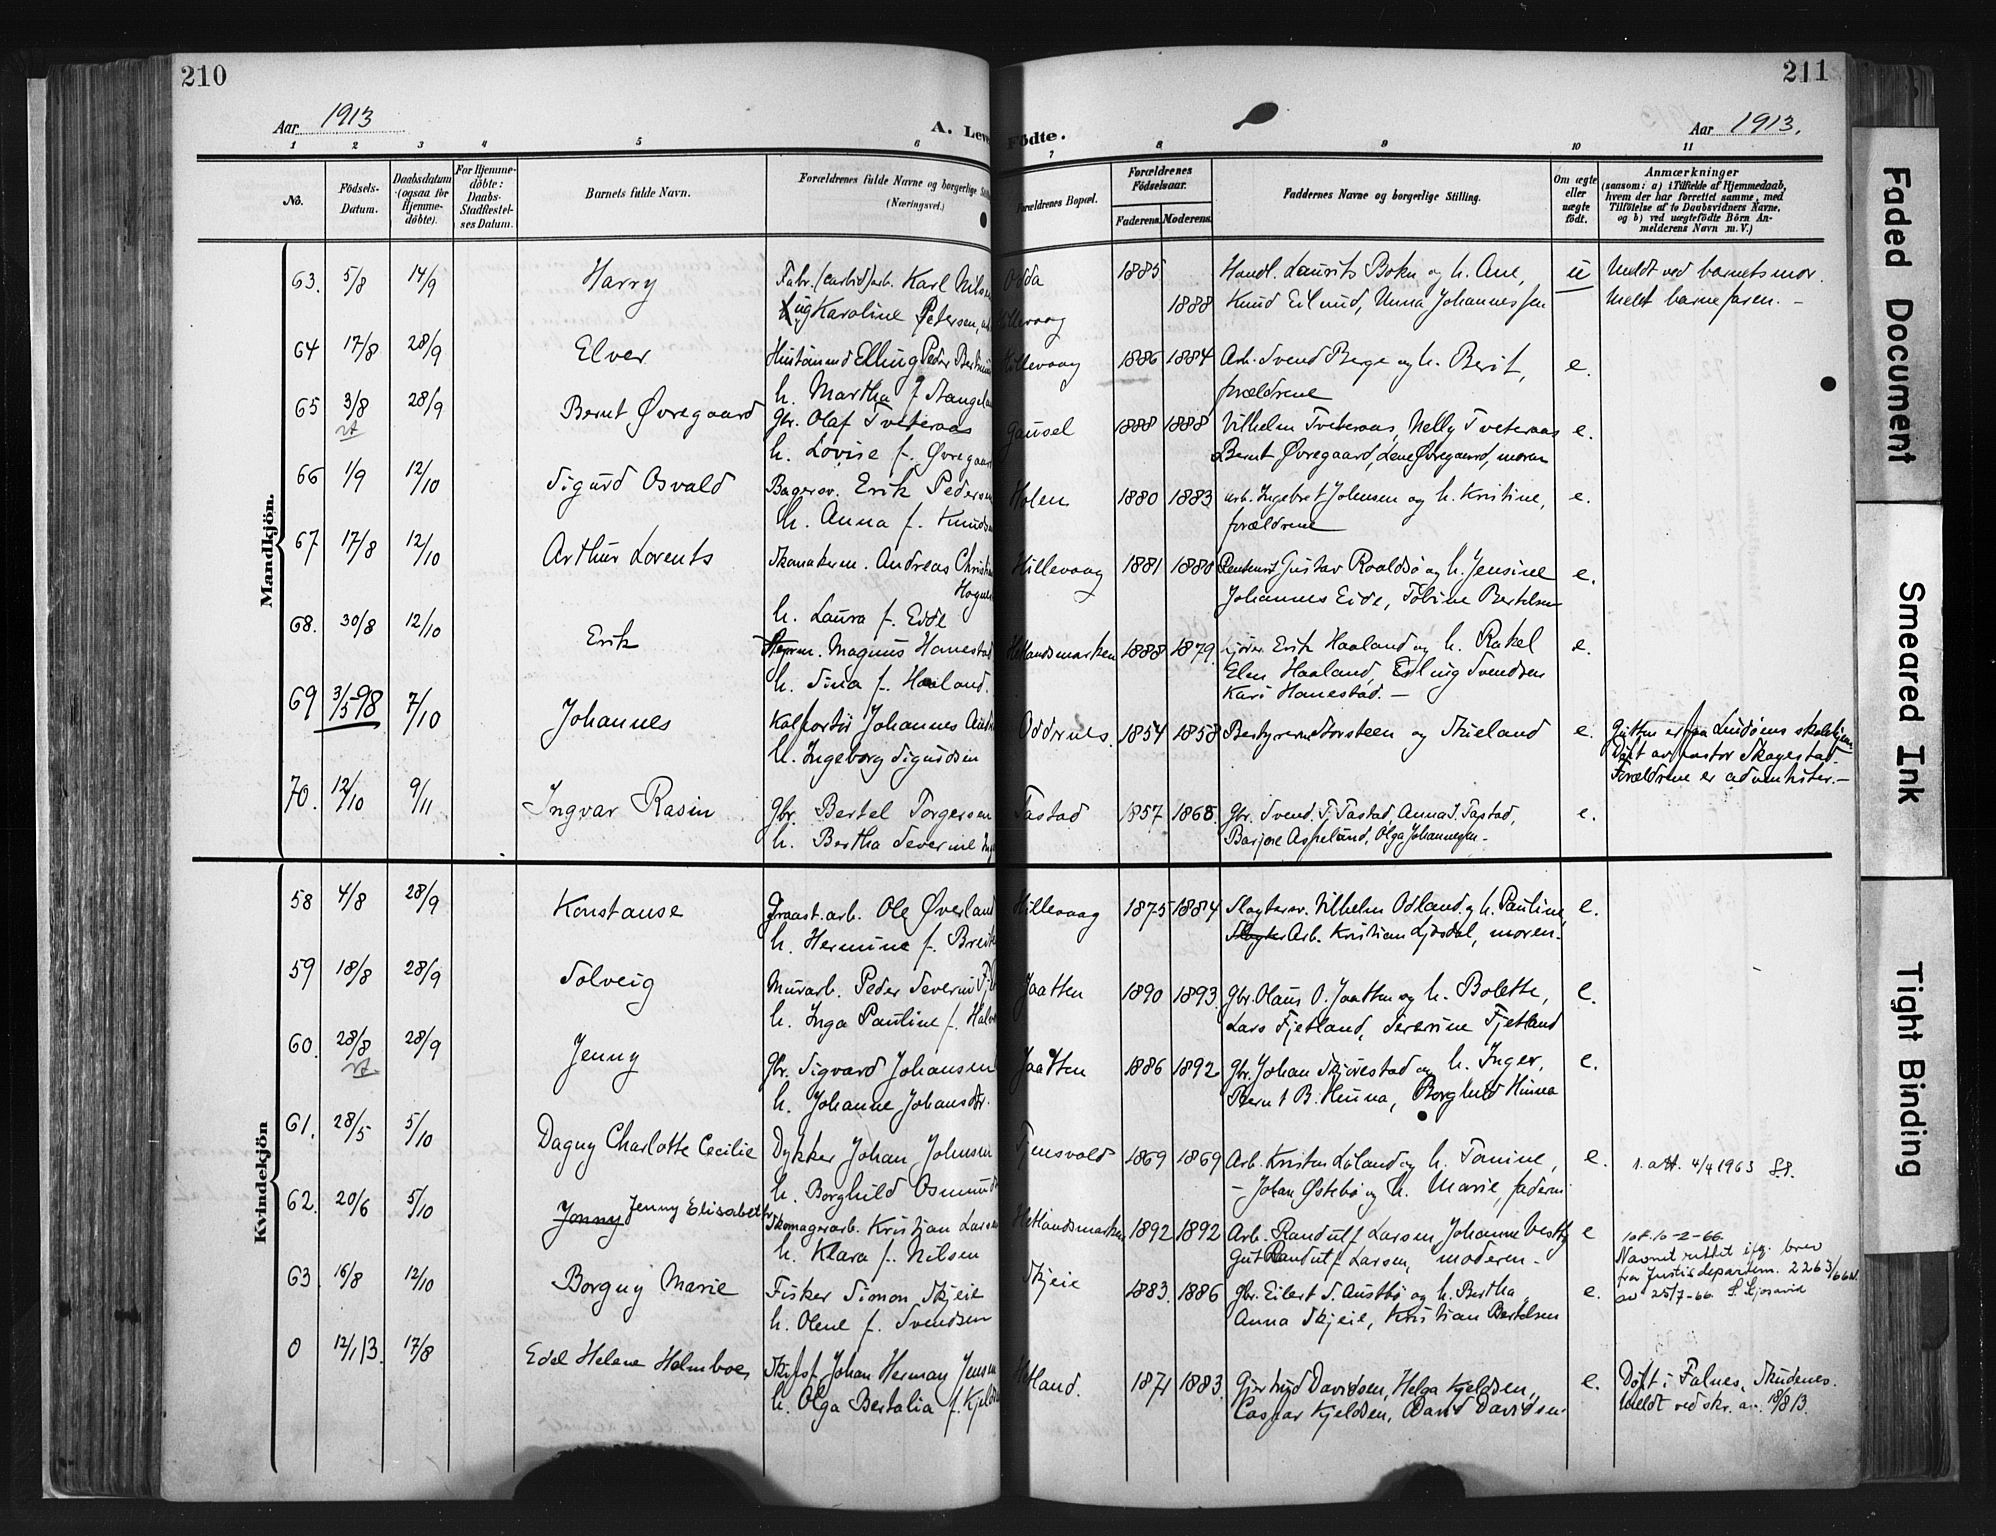 210
211
Aar 1913
A. Leve
Födte.
Aar 1913.
1 2 3 4 5 6 7 8 9 10 11
No.
Födsels-Datum.
Daabsdatum (ogsaa for Hjemmedöbte).
For Hjemmedöbte: Daabs-Stadfæstelses Datum.
Barnets fulde Navn.
Forældrenes fulde Navne og borgerlige Stilling (Næringsvei.)
Forældrenes Bopæl.
Forældrenes Födselsaar.
Faderens. Moderens.
Faddernes Navne og borgerlige Stilling.
Om ægte eller uægte födt.
Anmærkninger
(saasom: a) i Tilfælde af Hjemmedaab, hvem der har forrettet samme, med Tilföielse af to Daabsvidners Navne, og b) ved uægtefödte Börn Anmelderens Navn m. V.)
Mandkjön.
63. 5/8 14/9 Harry Fabr.(carbid)arb. Karl Nilsen Odda 1885 Handl. Laurits Bokn og h. Ane, u Meldt ved barnets mor.
ug Karoline Petersen, Hillevaag 1888 Knud Eilmid, Unna Johannessen Meldt barnefaren. -
64 17/8 28/9 Elver Elling Peder Hillevaag 1886 1884 Arb. Svend Berge og h. Berit, e.
h. Martha f Stangeland forældrene
65 3/8 28/9 Bernt Øvregaard gbr. Olaf Tveteraas Gausel 1888 1888 Vilhelm Tveteraas, Nelly Tveteraas e.
h. Lovise f. Øvregaard Bernt Øvregaard, Lene Øvregaard, moren
66 1/9 12/10 Sigurd Osvald Bagersv. Erik Pedersen Holen 1880 1883 arb. Ingebret Johnsen og h. Kristine, e.
h. Anna f. Knudsen forældrene
67 17/8 12/10 Arthur Lorents Skomakerm. Andreas Christian Hillevaag 1881 1880 Gustav Roaldsø og h. Jensine e.
h. Laura f. Eide Johannes Eide, Tobine Bertelsen
68. 30/8 12/10 Erik Magnus Hanestad Hetlandsmarken 1888 1879. Erik Haaland og h. Rakel e.
h. Sina f. Haaland. Elen Haaland, Erling Svendsen
Kari Hanestad. -
69 3/5-98 7/10 Johannes Kolportør Johannes Oddernes. 1854 1858 Bestyrerne Torsteen og Skieland e. Gutten er fra Lindøens skolehjem
h. Ingeborg Sigurdsen Døpt av pastor Skagestad.
Forældrene er adventister. -
70. 12/10 9/11 Ingvar Rasin gbr. Bertel Torgersen Tastad 1857 1868. Gbr. Svend T. Tastad, Anna T. Tastad, e.
h. Bertha Severine Aspelund, Olga Johannessen -
Kvindekjön
58 4/8 28/9 Konstanse Graast. arb. Ole Øverland Hillevaag 1875 1884 Slagtersv. Vilhelm Odland og h. Pauline, e.
h. Hermine f. Arb. Kristian Ljosdal, moren.
59 18/8 28/9 Solveig Murarb. Peder Severin Jaatten 1890 1893. Gbr. Olaus O. Jaatten og h. Bolette, e.
h. Inga Pauline f. Lars Fjetland, Severine Fjetland
60. 28/8 28/9 Jenny Gbr. Sigvard Johansen Jaatten 1886 1892 Gbr. Johan Skjørestad og h. Inger, e.
h. Johanne Johansdtr. Bernt B. Hinna, Borghild Hinna
61. 28/5 5/10 Dagny Charlotte Cecilie Dykker Johan Johnsen Tjensvold 1869 1869 Arb. Kristen Leland og h. Tanine, e. 1. att. 4/4 1963
h. Borghild Osmund - Johan Østebø og h. Marie, faderen
62. 20/6 5/10 Jenny Jenny Elisabeth Skomagerarb. Kristian Larsen Hetlandsmarken 1892 1892 Arb. Randulf Larsen, Johanne Vestby e
h. Klara f. Nilsen Randulf Larsen, moderen - Navnet rettet ifg. brev
fra Justisdepartem. 2263/66
av 25/7-66.
63. 16/8 12/10 Borgny Marie Fisker Simon Skjeie Skjeie 1883. 1886 Gbr. Eilert S. Austbø og h. Bertha, e.
h. Olene f. Svendsen Anna Skjeie, Kristian Bertelsen
0 12/1 13. 17/8 Edel Helene Holmboe Skipsf. Johan Herman Jensen Hetland. 1871 1883. Gjertrud Davidsen, Helga Kjeldsen, e. Døpt i Falnes, Skudenes.
h. Olga Bertalia f. Kjeldsen Caspar Kjeldsen, David Davidsen. Meldt ved skr. av 18/8 13.
Faded Document
Smeared Ink
Tight Binding